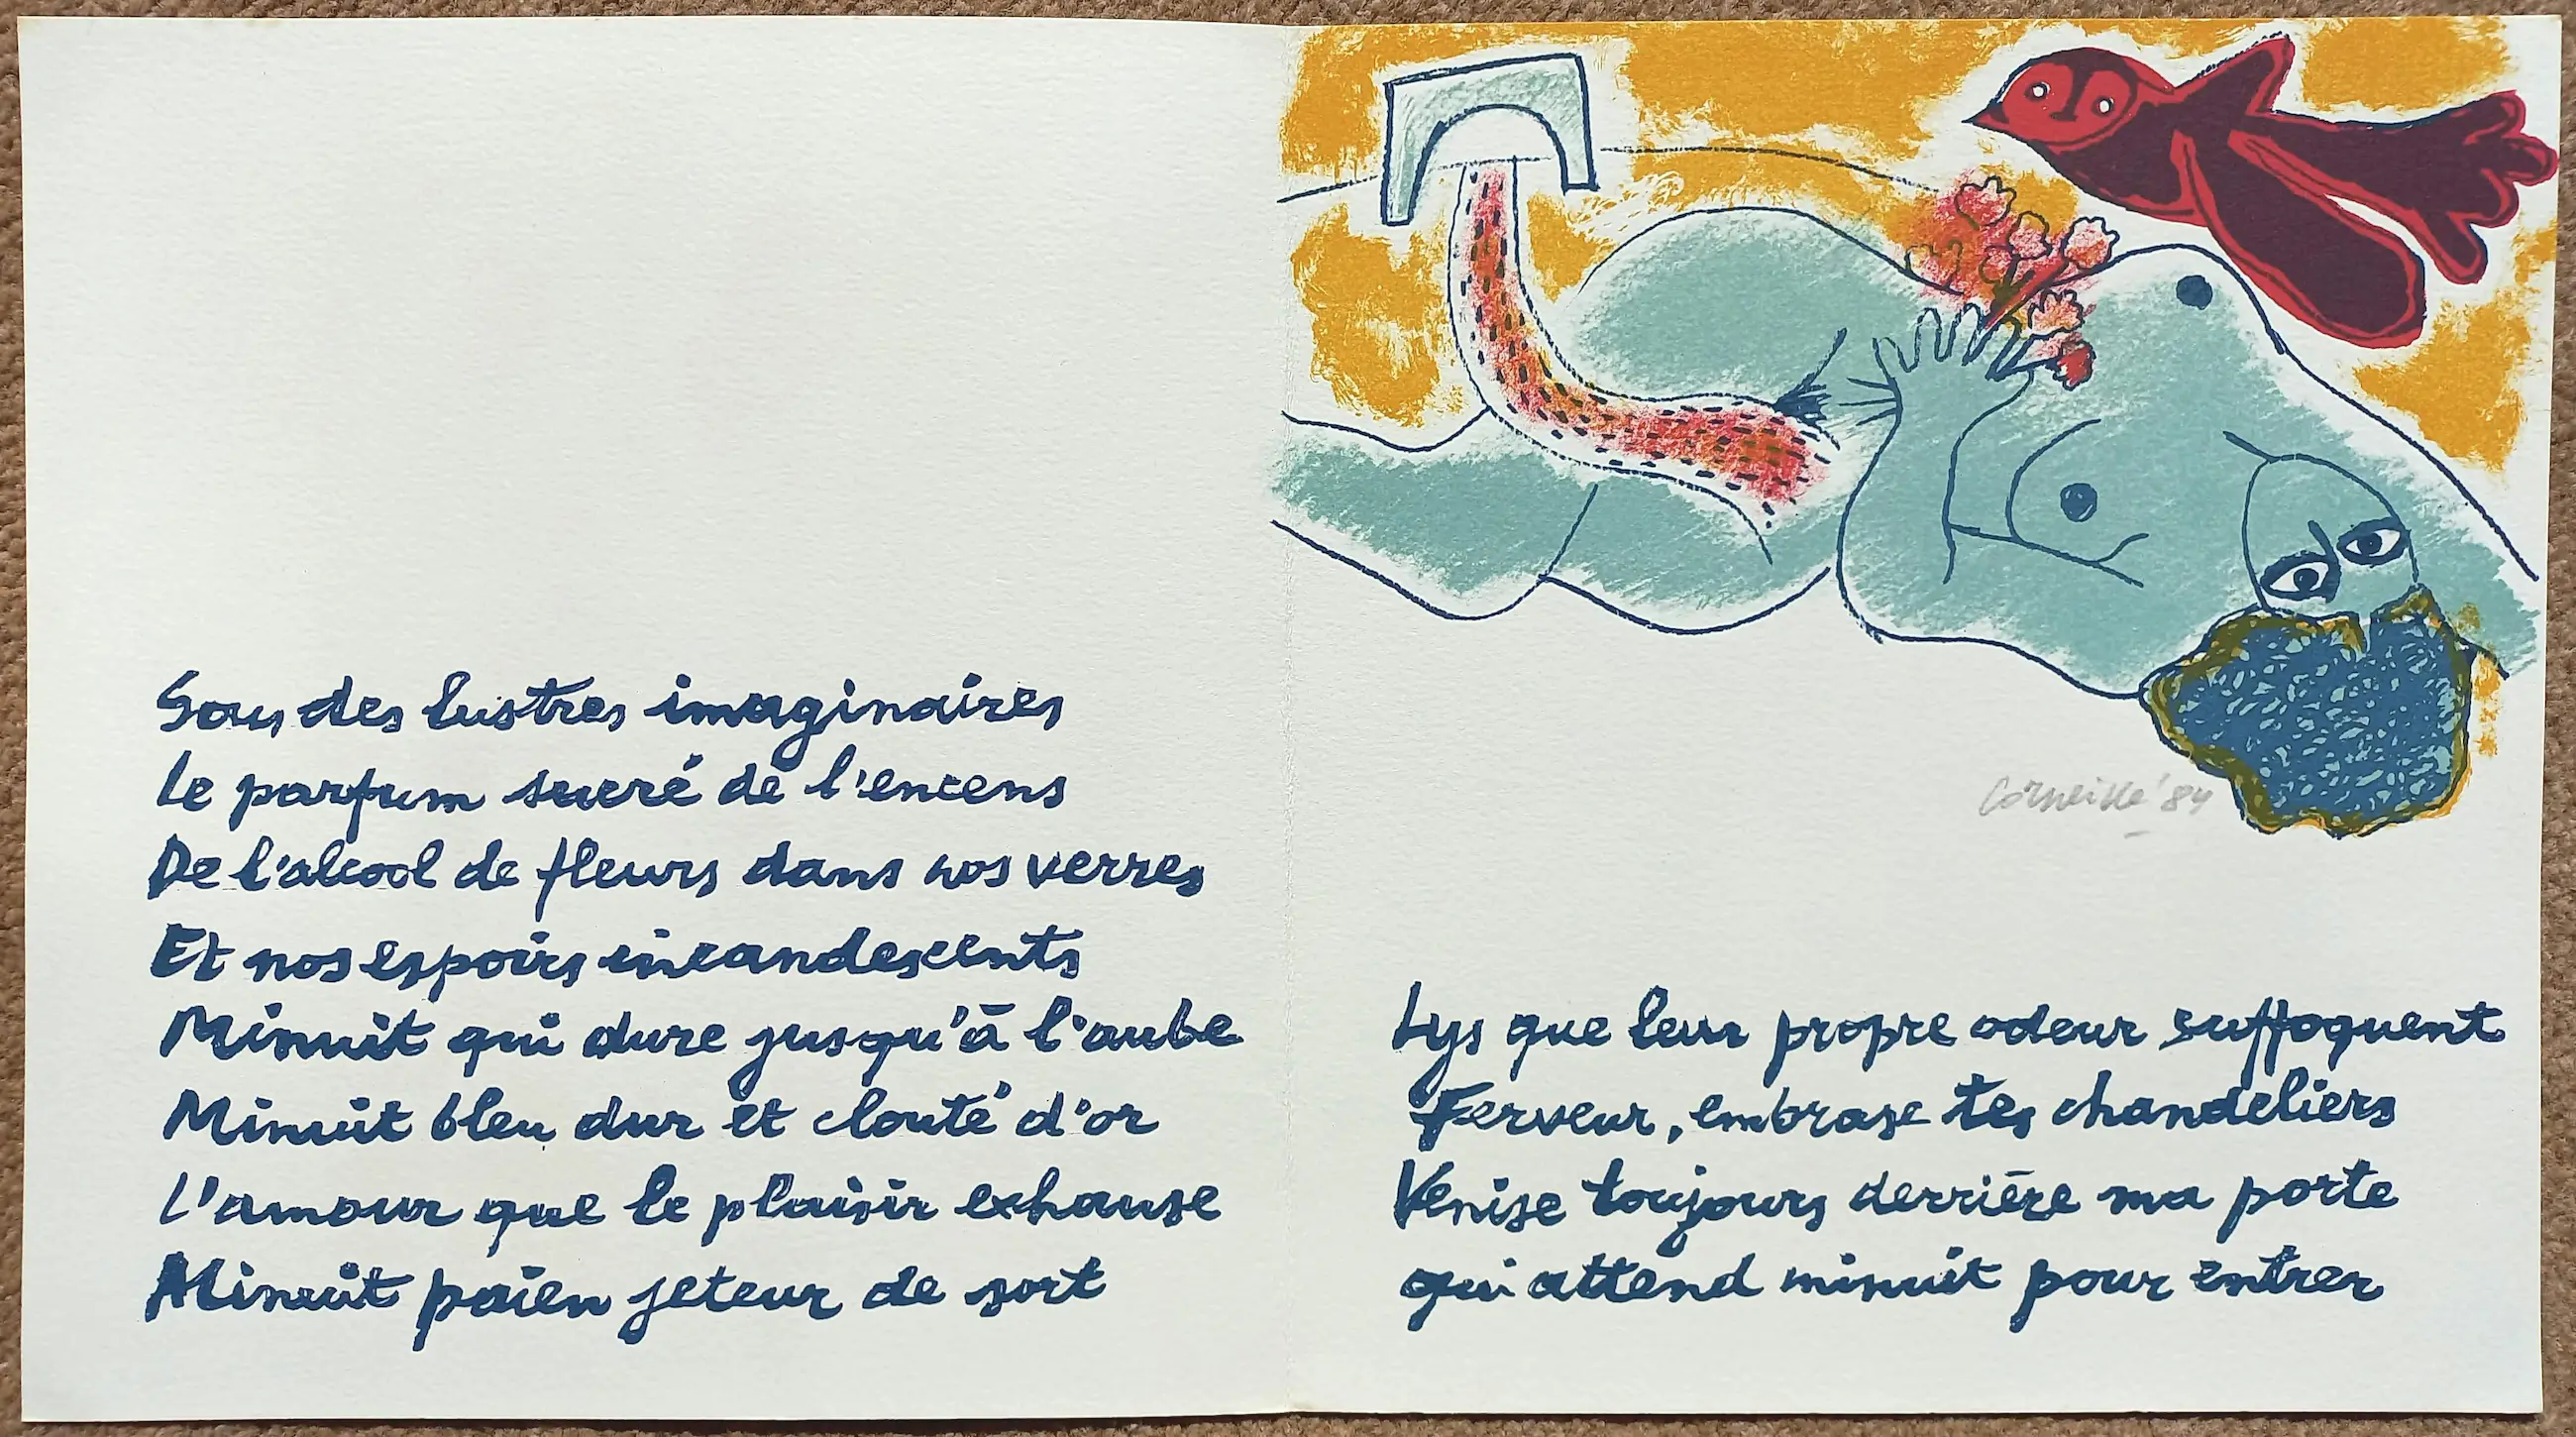 Sous des lustres imaginaires
Le parfum sucré de l'encens
De l'alcool de fleurs dans nos verres
Et nos espoirs incandescents
Minuit qui dure jusqu'à l'aube
Minuit bleu dur et clouté d'or
L'amour que le plaisir exhause
Minuit païen jeteur de sort
Corneille '84
Lys que leur propre odeur suffoquent
Ferveur, embrase tes chandeliers
Venise toujours derrière ma porte
qui attend minuit pour entrer